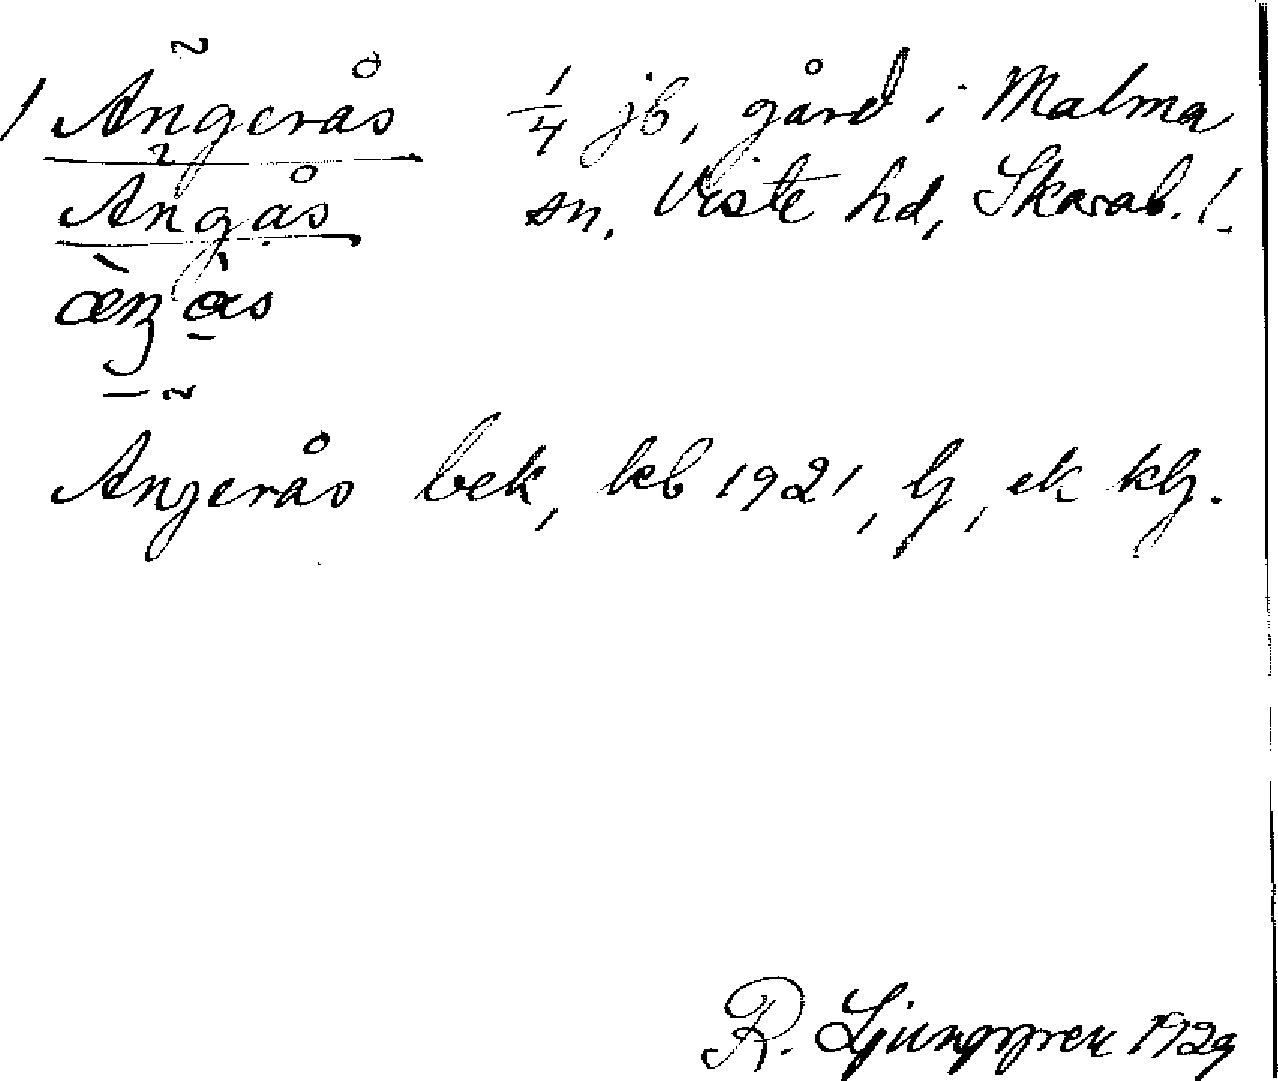 1 Ängerås 1/4 jb, gård i Malma
Ängås sn, Viste hd, Skarab. l.
Angerås bek, kb 1921, lj, ek klj.
R. Ljunggren 1929